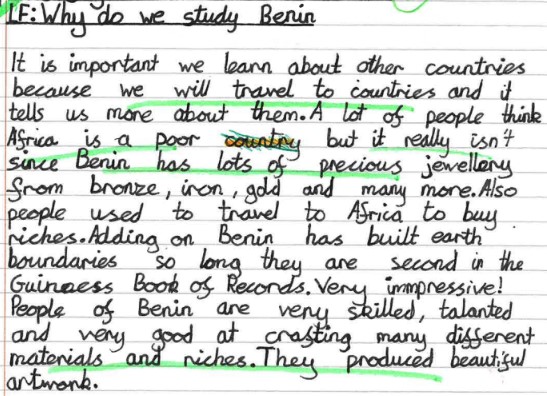 LF: Why do we study Benin
It is important we learn about other countries
because we will travel to countries and it
tells us more about them. A lot of people think
Africa is a poor country but it really isn't
since Benin has lots of precious jewellery
from bronze, iron, gold and many more. Also
people used to travel to Africa to buy
riches. Adding on Benin has built earth
boundaries so long they are second in the
Guinness Book of Records. Very immpressive!
People of Benin are very skilled, talanted
and very good at crafting many different
materials and riches. They produced beautiful
artwork.